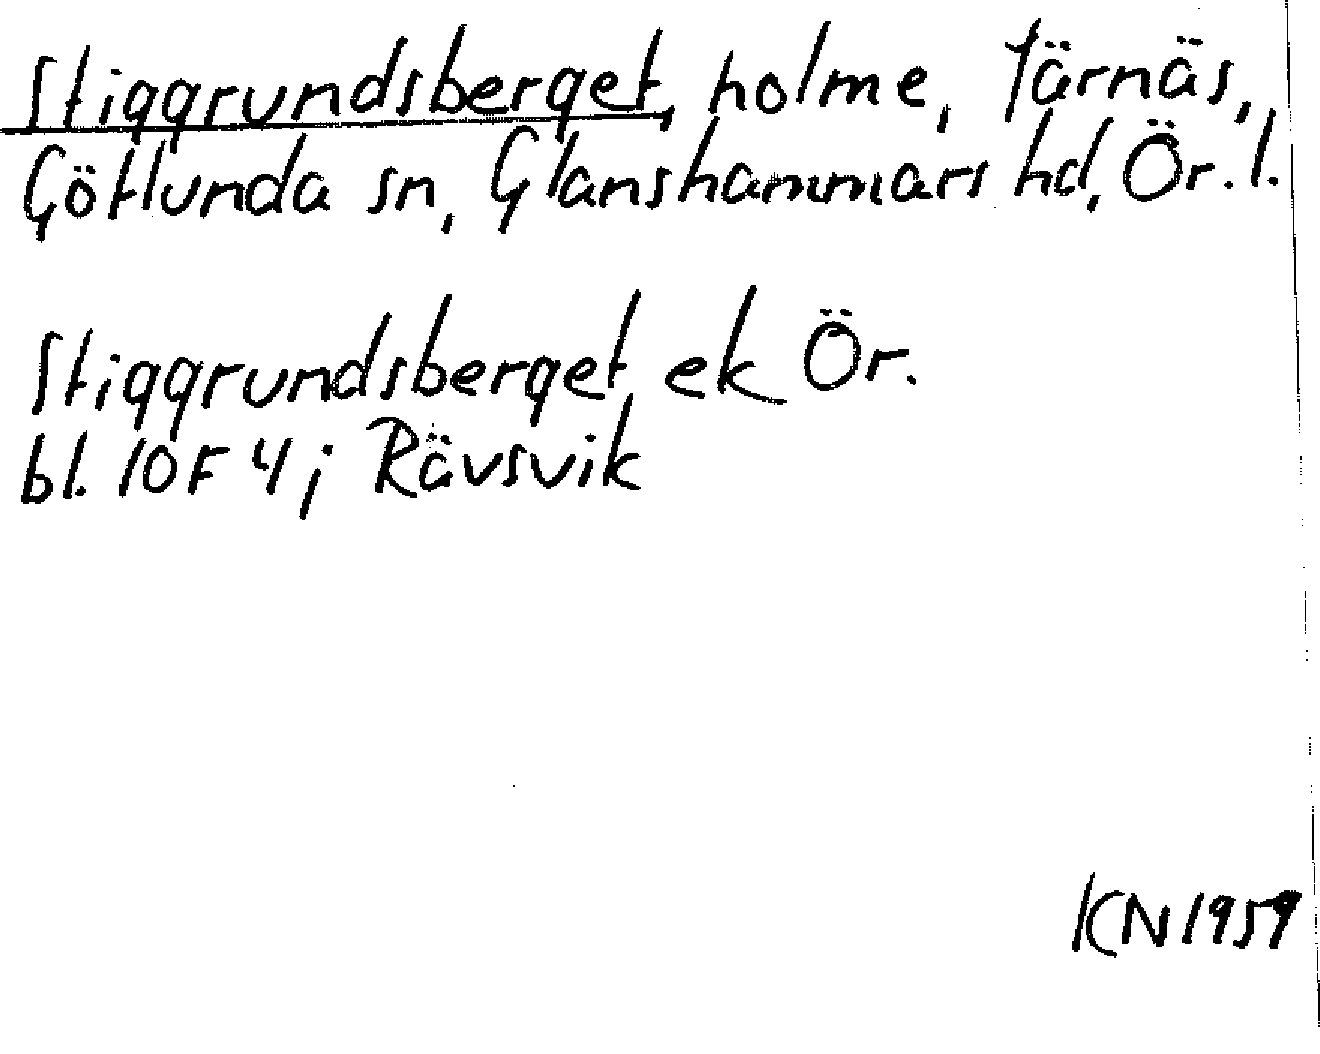 Stiggrundsberget, holme, Tärnäs,
Götlunda sn, Glanshammars hd, Ör. l.
Stiggrundsberget ek Ör.
bl. 10F 4j Rävsvik
KN 1959